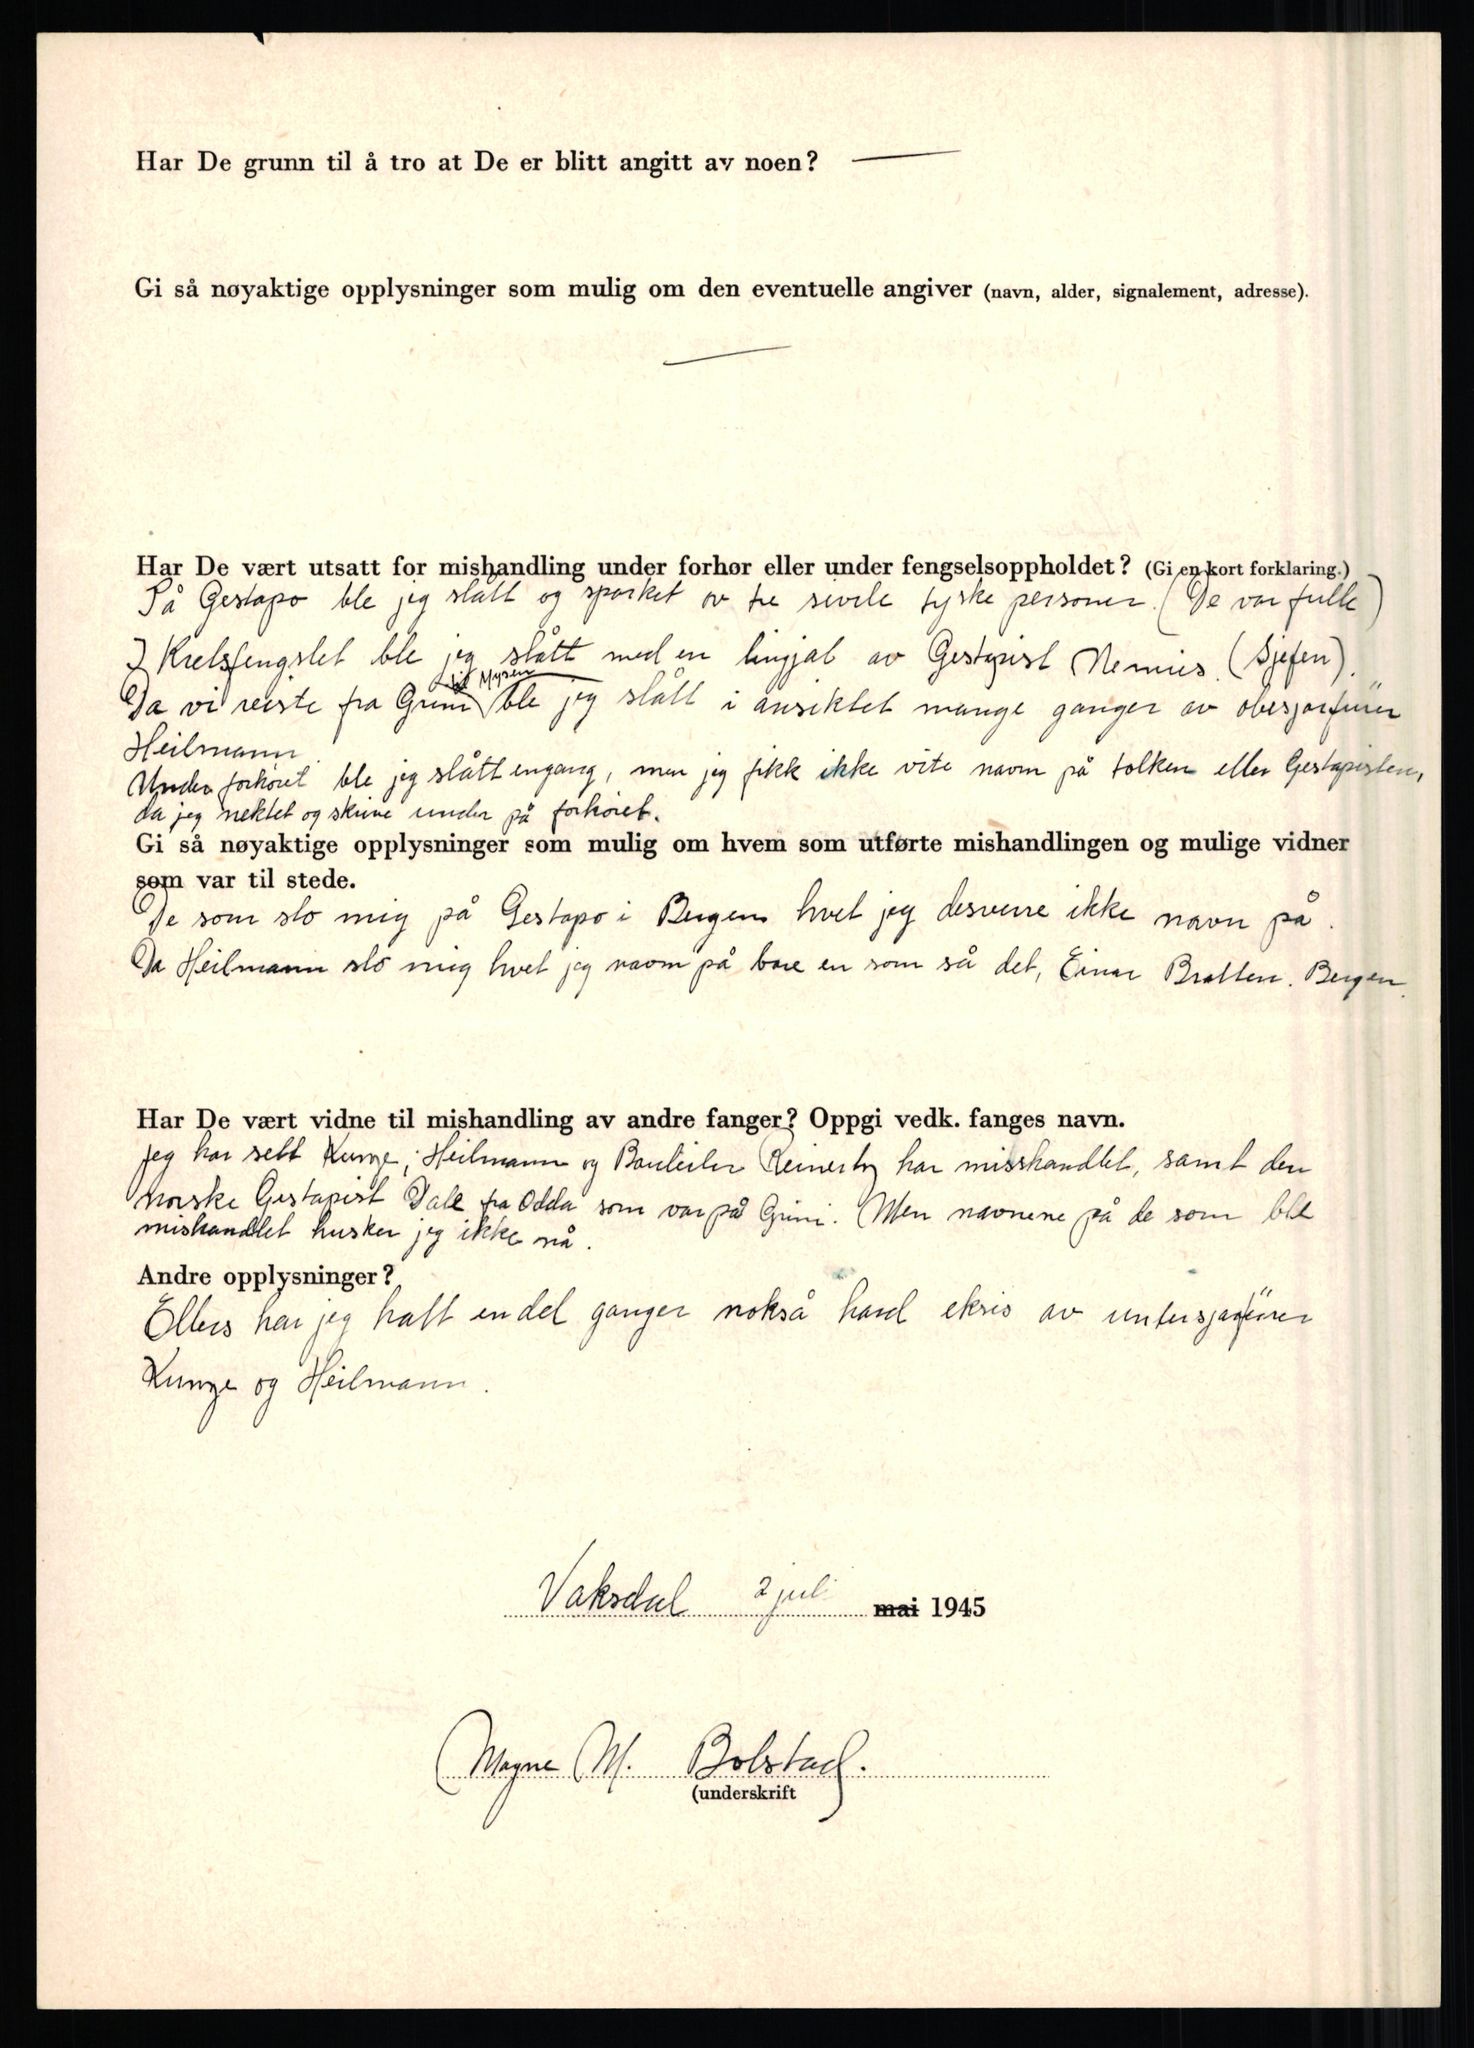 Har De grunn til å tro at De er blitt angitt av noen? —
Gi så nøyaktige opplysninger som mulig om den eventuelle angiver (navn, alder, signalement, adresse).
—
Har De vært utsatt for mishandling under forhør eller under fengselsoppholdet? (Gi en kort forklaring.)
På Gestapo ble jeg slått og sparket av tre sivile tyske personer. (De var fulle)
I Kretsfengslet ble jeg slått med en linjal av Gestapist Nemies. (Sjefen).
til Mysen
Da vi reiste fra Grini ble jeg slått i ansiktet mange ganger av obersjarfürer
Heilmann.
Under forhöret ble jeg slått engang, men jeg fikk ikke vite navn på tolken eller Gestapisten,
da jeg nektet og skrive under på forhöret.
Gi så nøyaktige opplysninger som mulig om hvem som utførte mishandlingen og mulige vidner
som var til stede.
De som slo mig på Gestapo i Bergen hvet jeg desverre ikke navn på.
Da Heilmann slo mig hvet jeg navn på bare en som så det, Einar Bratten. Bergen.
Har De vært vidne til mishandling av andre fanger? Oppgi vedk. fanges navn.
Jeg har sett Kunze, Heilmann og Bauleiter har misshandlet, samt den
norske Gestapist Dale fra Odda som var på Grini. Men navnene på de som ble
mishandlet husker jeg ikke nå.
Andre opplysninger?
Ellers har jeg hatt en del ganger nokså hard eksis av untersjarfürer
Kunze og Heilmann.
Vaksdal 2 juli mai 1945
Magne M. Bolstad.
(underskrift